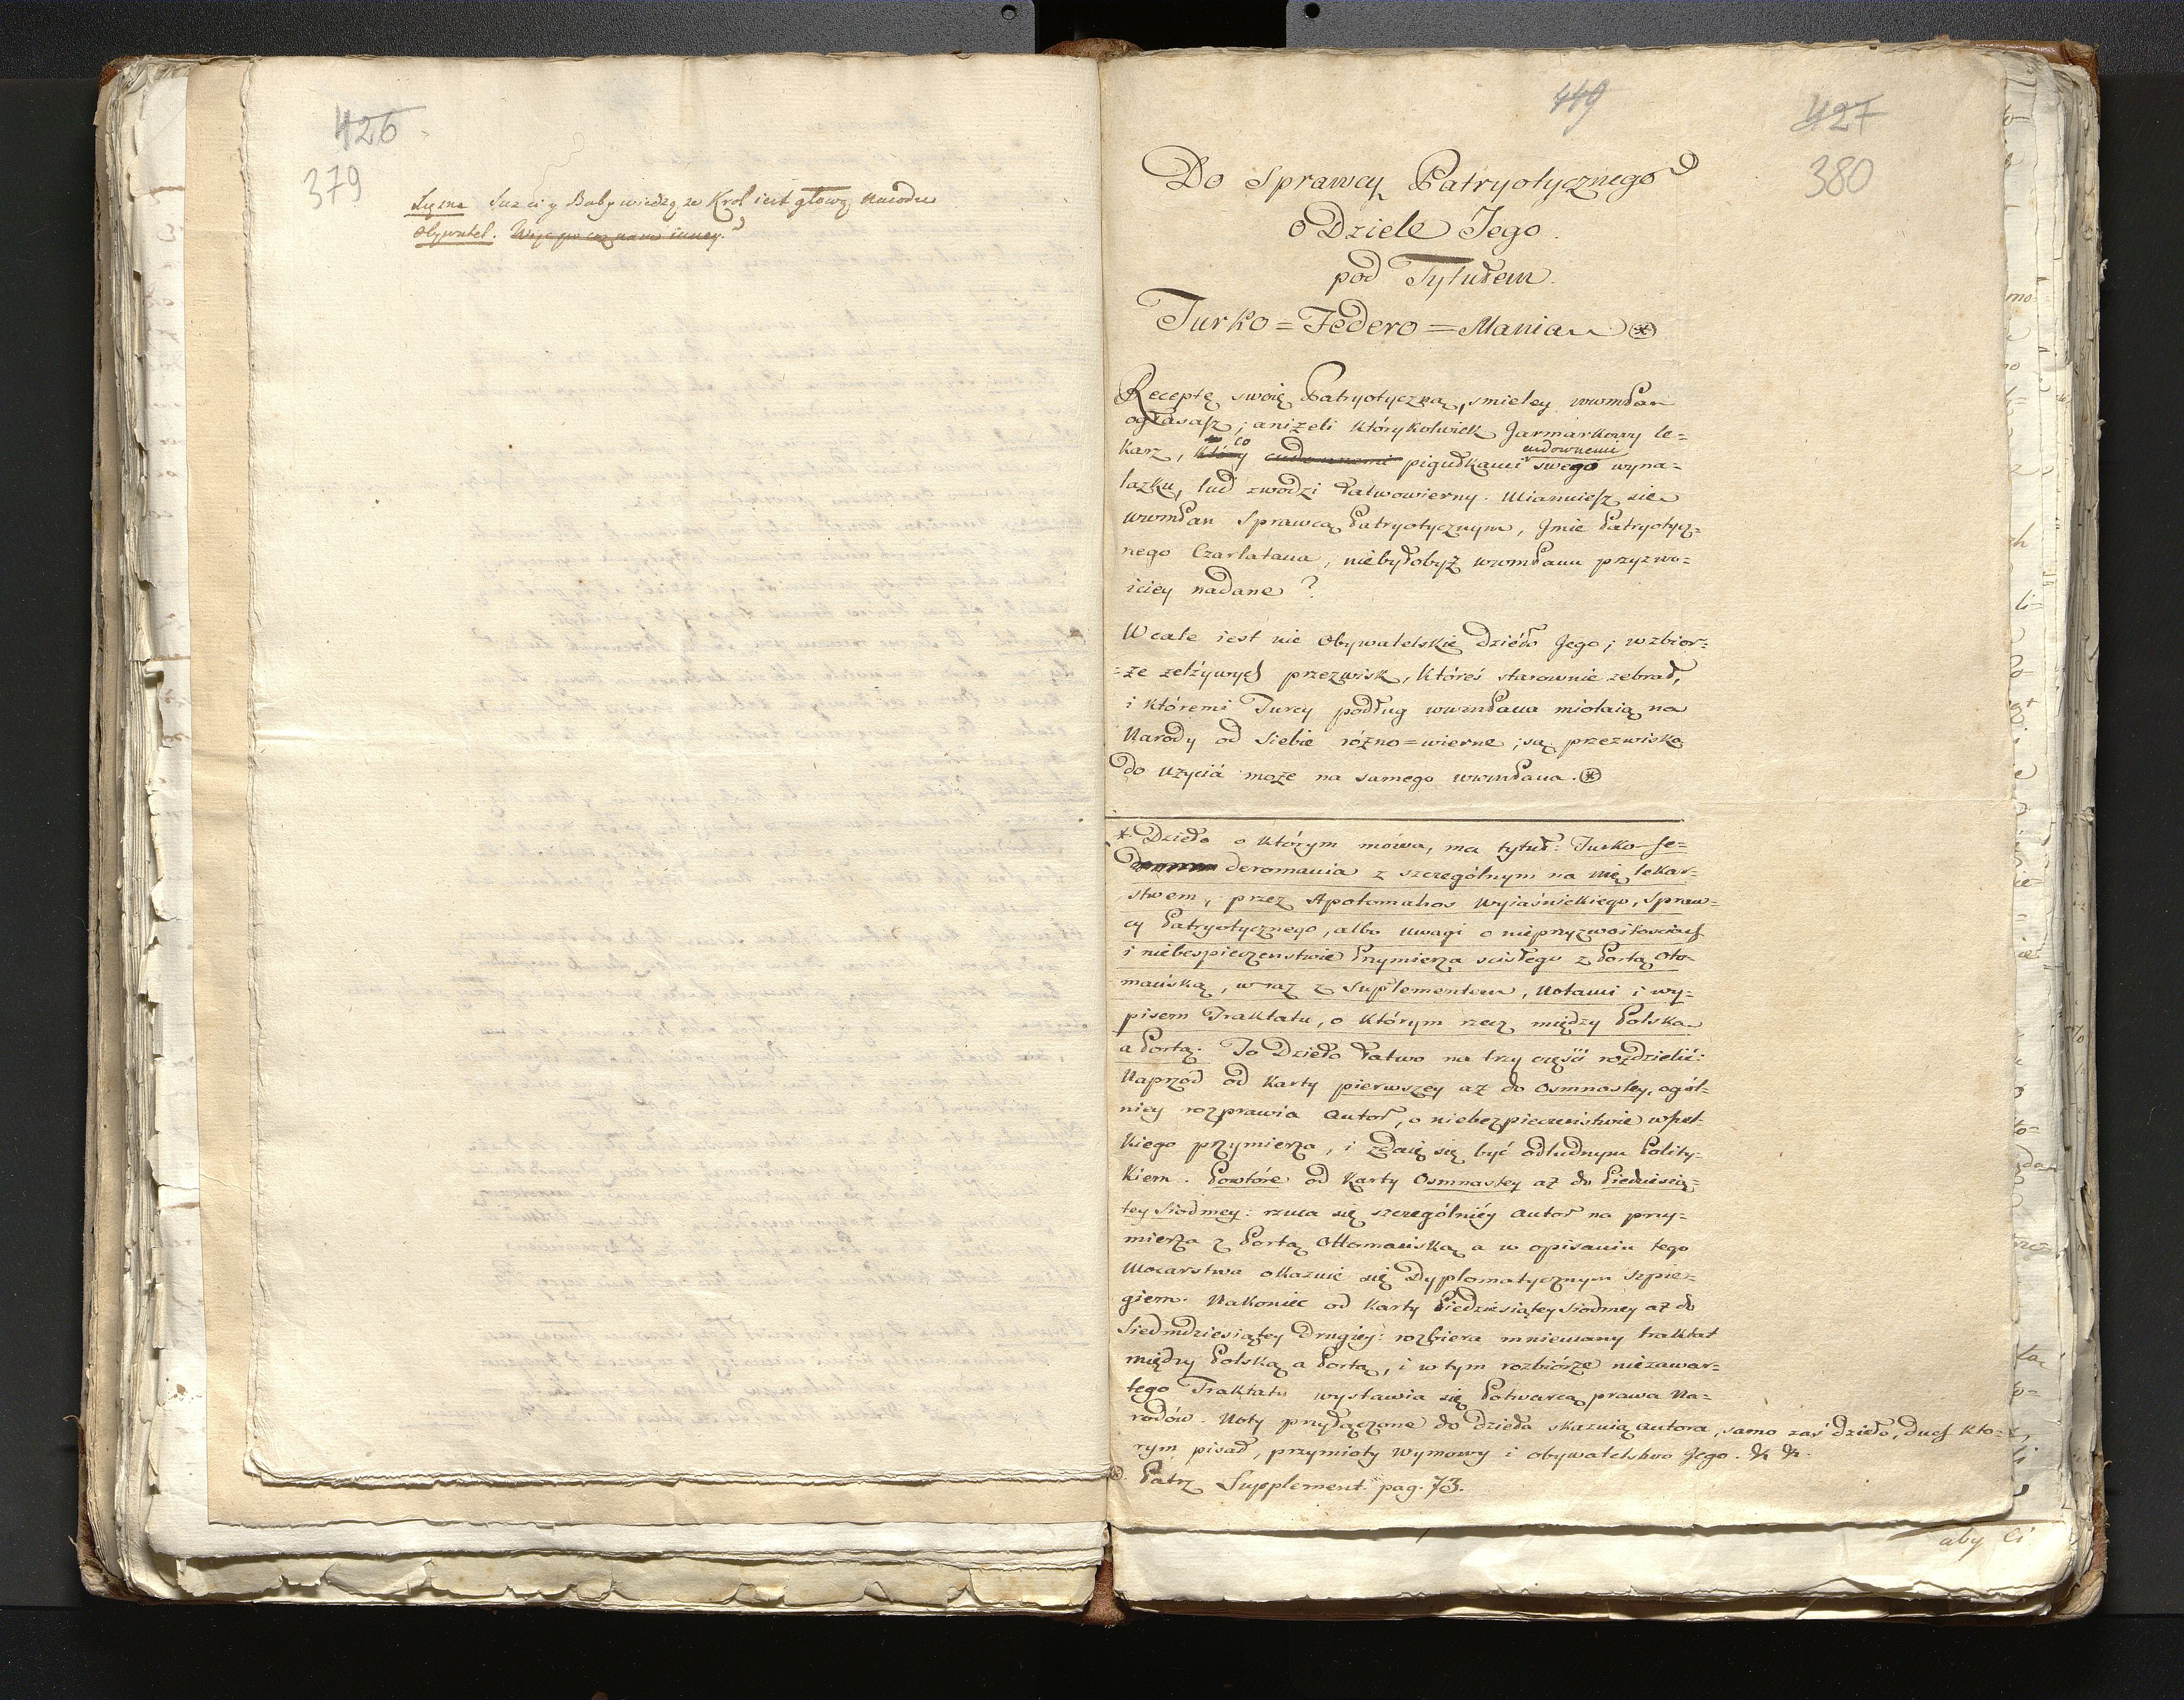 426
379
Sężna Juz ci y Baby wiedzą ze Krol iest głową Narodu
Obywatel. Więc po coz nam inney.
449
427
380
Do Sprawcy Patryotycznego
O Dziele Jego.
pod Tytułem.
Turko=Federo=Mania ⊛
Receptę swoię Patryotyczną, smieley wwmPan
ogłasasz; aniżeli którykolwiek Jarmarkowy le=
karz, który co cudownemi pigułkami cudownemi swego wyna=
lazku, lud zwodzi łatwowierny. Mianuiesz sie
wwmPan Sprawcą Patryotycznym, Jmie Patryotycz=
nego Czarlatana, niebyłobyż wwmPanu przyzwo=
iciey nadane?
Wcale iest nie Obywatelskie dzieło Jego; w zbior=
=ze zelżywych przezwisk, któreś starownie zebrał,
i któremi Turcy podług wwmPana miotaią na
Narody od Siebie różno=wierne; są przezwiska
do użyciá może na samego wwmPana. ⊛
* Dzieło o którym mówa, ma tytuł: Turko-fe=
deromania z szczególnym na nię lekar=
stwem, przez Apotomahos Wyiaśnickiego, Spraw=
cy Patryotycznego, albo uwagi o nieprzyzwoitosciach
i niebespieczenstwie Przymierza scisłego z Portą Oto
mańską, wraz z Suplementem, Notami i wy=
pisem Traktatu, o którym rzecz między Polska
a Portą. To Dzieło łatwo na trzy częśći rozdzielić:
Naprzod od Karty pierwszey aż do Osmnastey, ogól=
niey rozprawia Autor, o niebezpieczeństwie wszel=
kiego przymierza, i zdaie się być odludnym Polity=
kiem. Powtóre od Karty Osmnastey aż do Piędziesią=
tey Siodmey: rzuca się szczególniéy Autor na przy=
mierza z Portą Ottomańską a w opisaniu tego
Mocarstwa okazuie się Dyplomatycznym szpie=
giem. Nakoniec od Karty Piedziesiątey Siodmey aż do
Siedmdziesiątey Drugiey: rozbiera mniemany traktat
między Polską a Portą, i w tym rozbiórze niezawar=
tego Traktatu wystawia się Potwarcą prawa Na=
rodów. Noty przyłączone do Dzieła skazuią Autora, samo zaś dzieło, duch kto=
rym pisał, przymioty wymowy i obywatelstwo Jego. & &.
⊛. Patrz Supplement pag. 73.
aby Ci